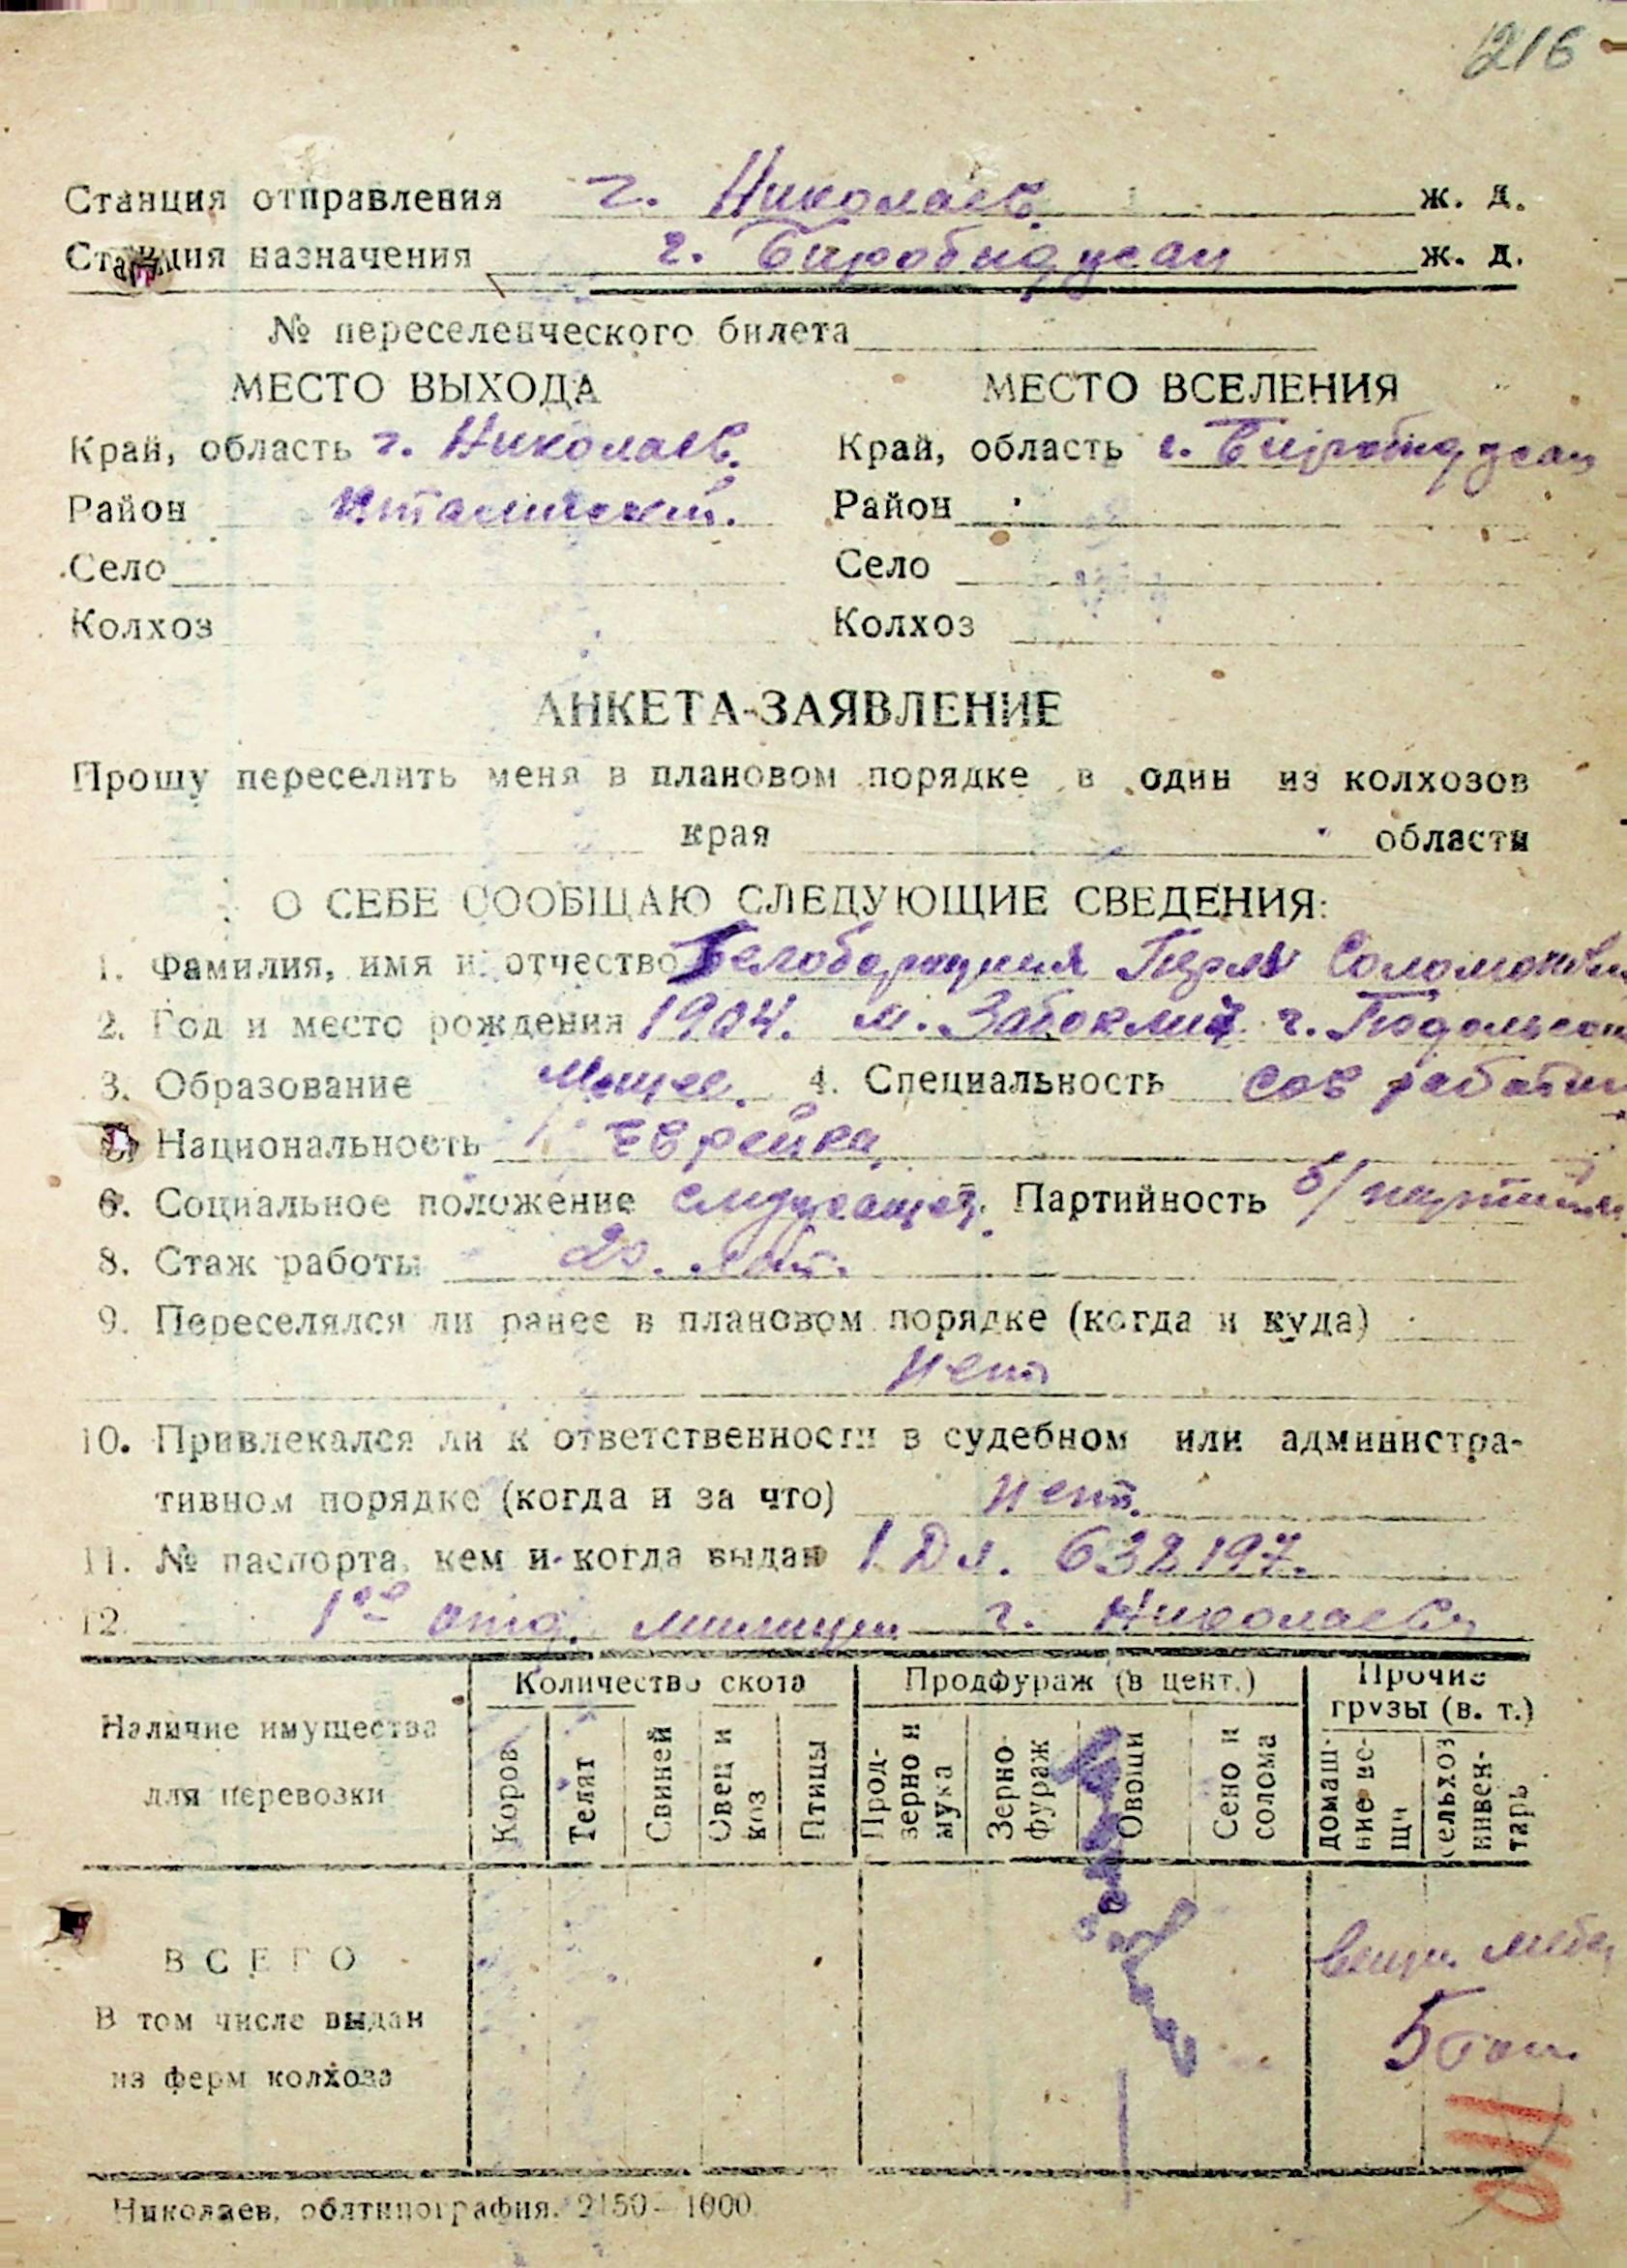 216
Станция отправления г. Николаев ж. д.
Станция назначения г. Биробиджан ж. д.
№ переселенческого билета
МЕСТО ВЫХОДА МЕСТО ВСЕЛЕНИЯ
Край, область г. Николаев. Край, область г. Биробиджан
Район Район
Село Село
Колхоз Колхоз
АНКЕТА-ЗАЯВЛЕНИЕ
Прошу переселить меня в плановом порядке в один из колхозов
края области
О СЕБЕ СООБЩАЮ СЛЕДУЮЩИЕ СВЕДЕНИЯ:
1. Фамилия, имя и отчество Соломонов
2. Год и место рождения 1904. м. г.
3. Образование 4. Специальность сов работн
Национальность Еврейка
6. Социальное положение служащая. Партийность б/партийн
8. Стаж работы 20. лет.
9. Переселялся ли ранее в плановом порядке (когда и куда)
Нет
10. Привлекался ли к ответственности в судебном или администра-
тивном порядке (когда и за что) нет.
11. № паспорта, кем и когда выдан 632197.
12. 1ое отд. милиции г. Николаева
Количество скота Продфураж (в цент.) Прочие грузы (в. т.)
Наличие имущества
для перевозки
Коров Телят Свиней Овец и коз Птицы Прод-зерно и мука Зерно-фураж Овощи Сено и солома домаш-ние ве-щи сельхоз инвен-тарь
ВСЕГО вещи. мебе
В том числе выдан 5 тон.
из ферм колхоза
Николаев, облтипография. 2150—1000.